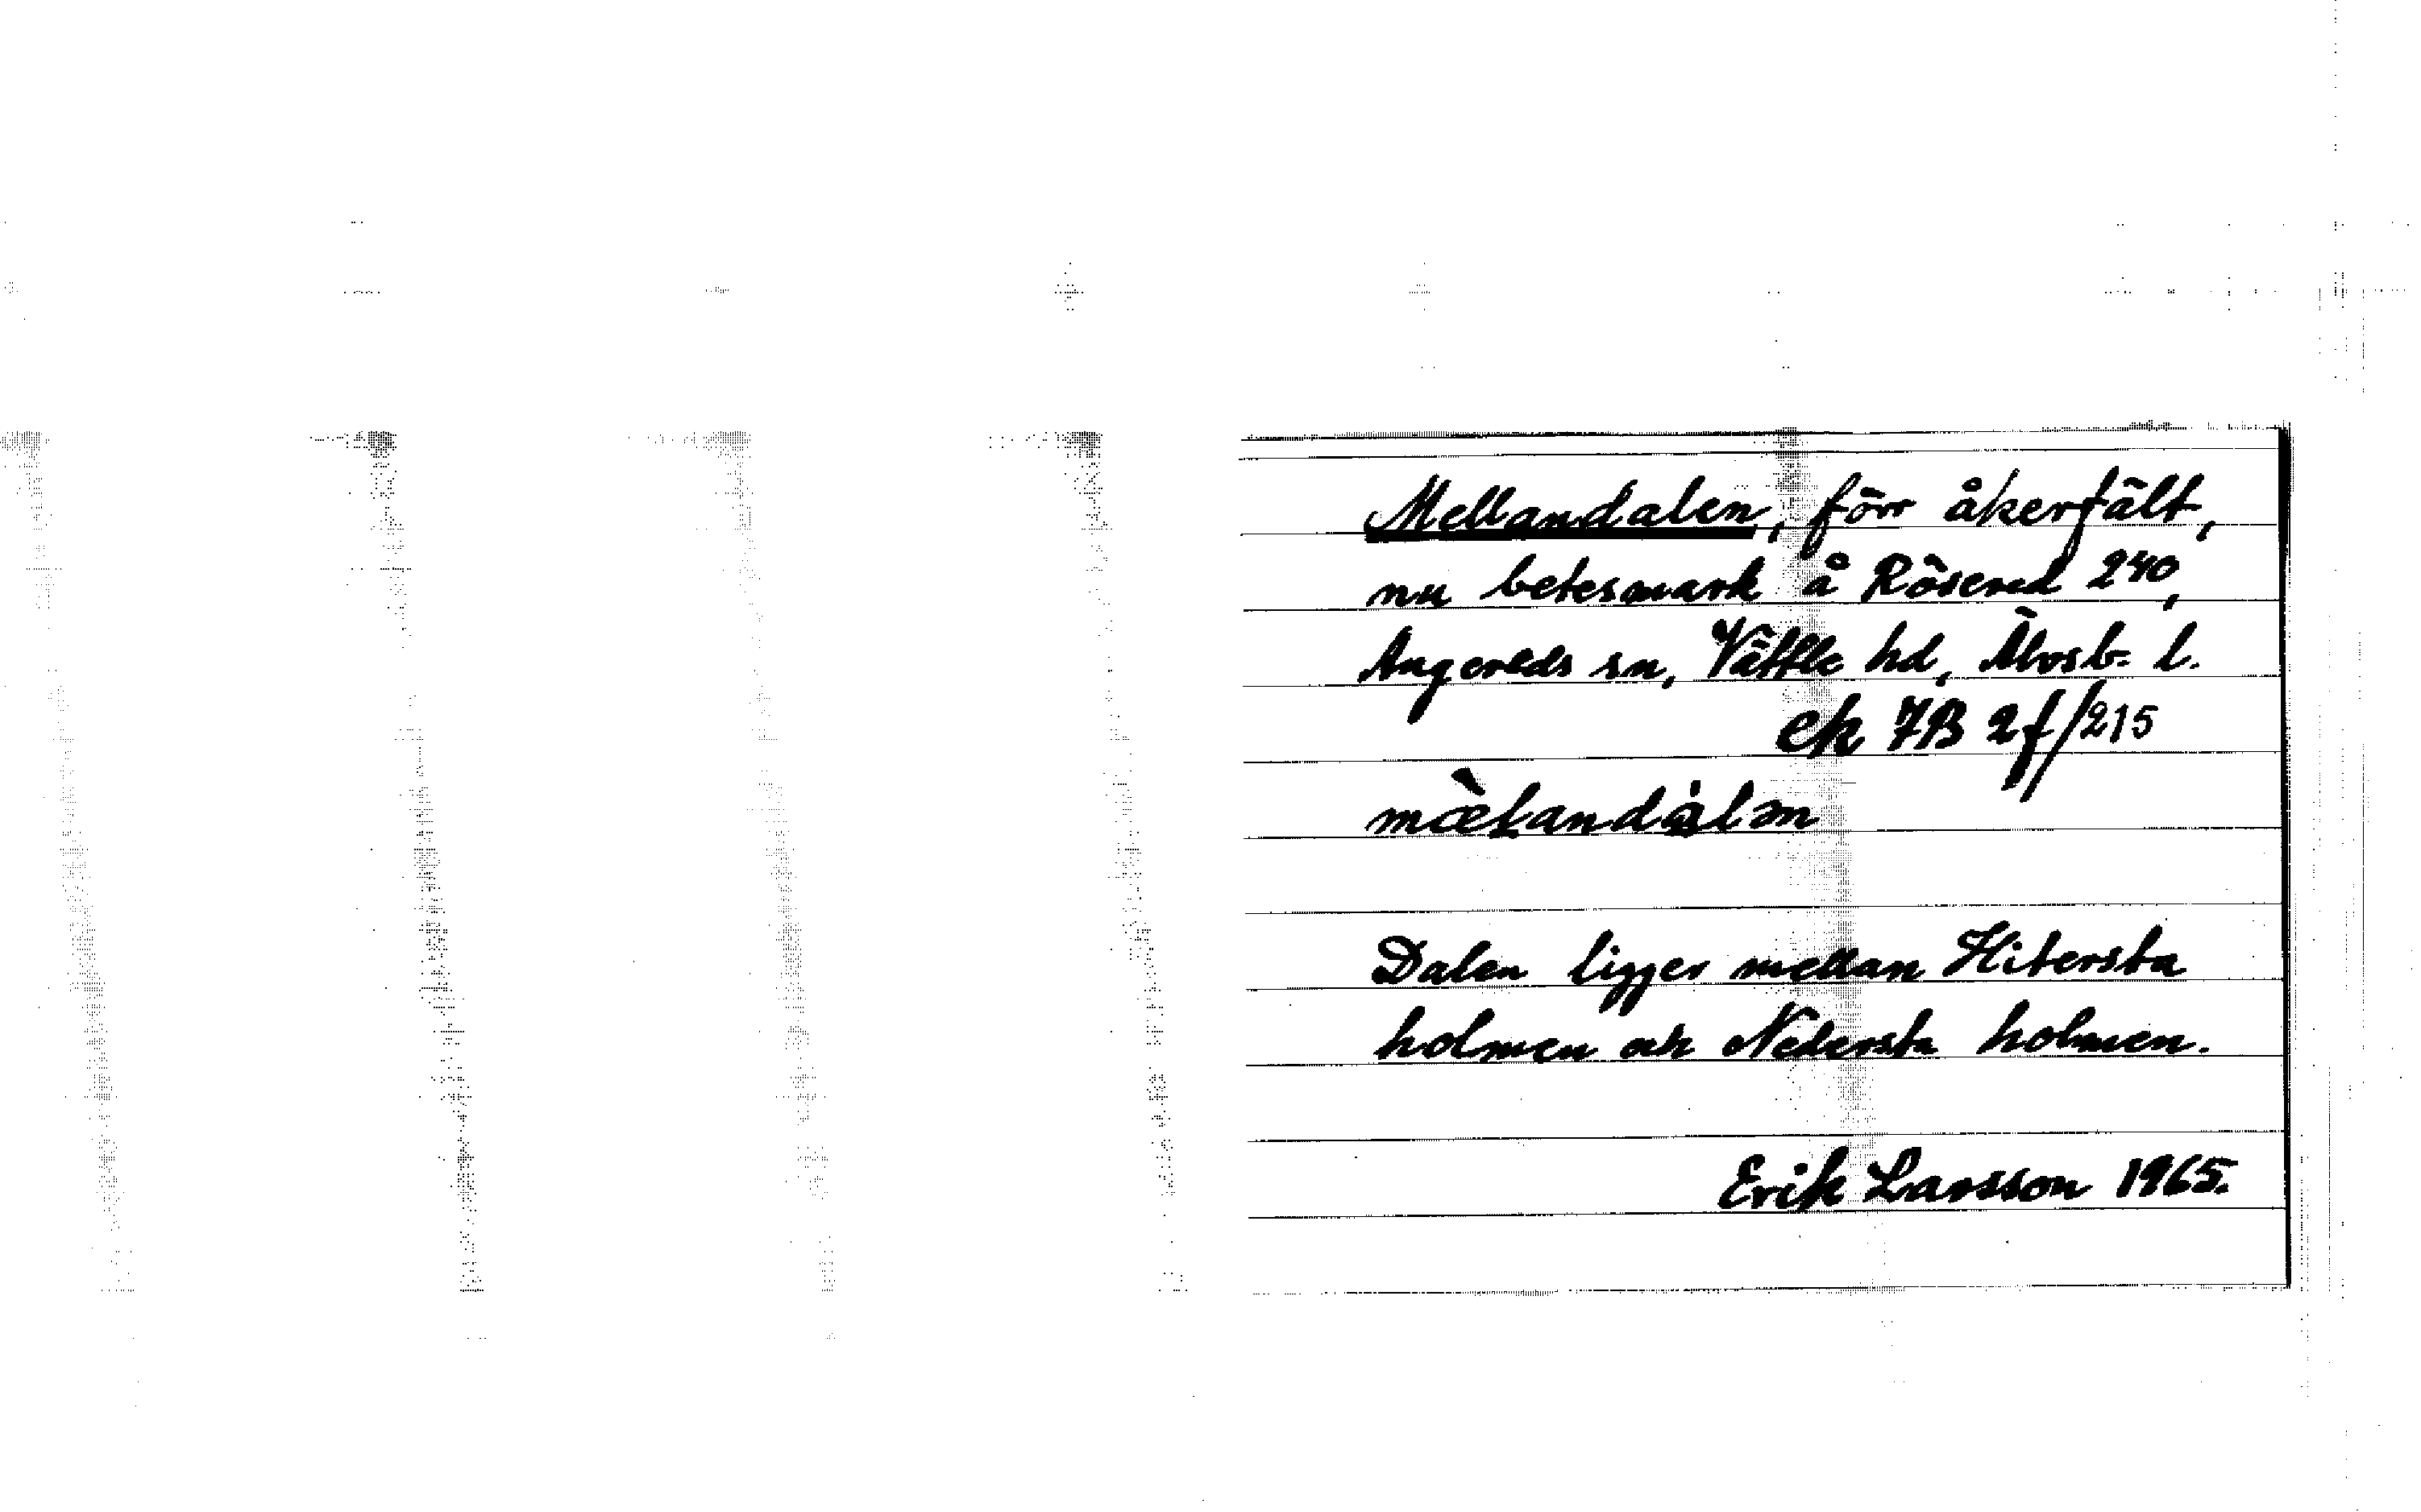 Mellandalen, förr åkerfält,
nu betesmark å Rösered 240,
Angereds sn, Vättle hd, Älvsb. l.
ek 7B 2f/215
mæ̀landàlən
Dalen ligger mellan Hitersta
holmen och Nedersta holmen.
Erik Larsson 1965.